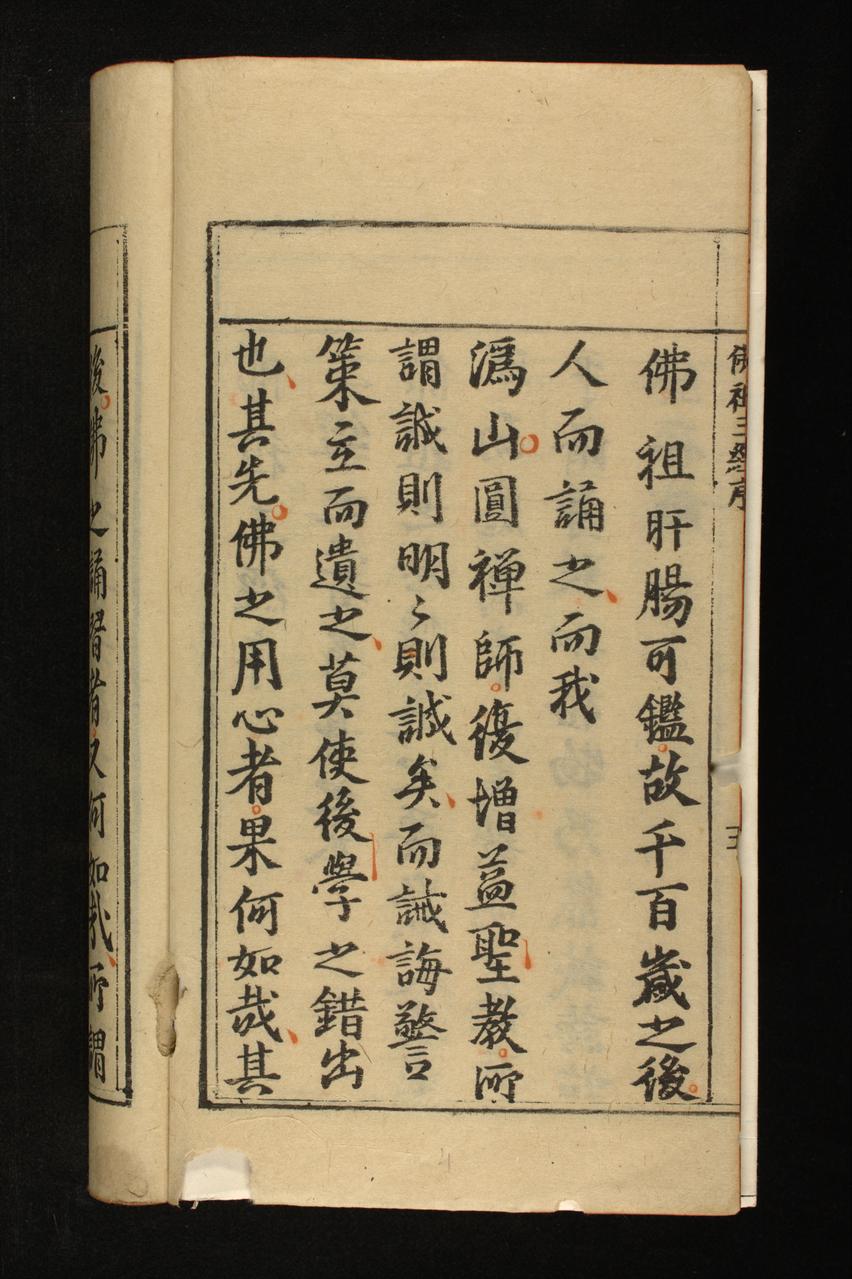 佛祖三經序
三
佛祖肝腸可鑑故千百歲之後
人而誦之而我
溈山圓禪師復增益聖教所
謂誠則明〻則誠矣而誡誨警
策立而遺之莫使後學之錯出
也其先佛之用心者果何如哉其
後佛之誦習者又何如哉所謂